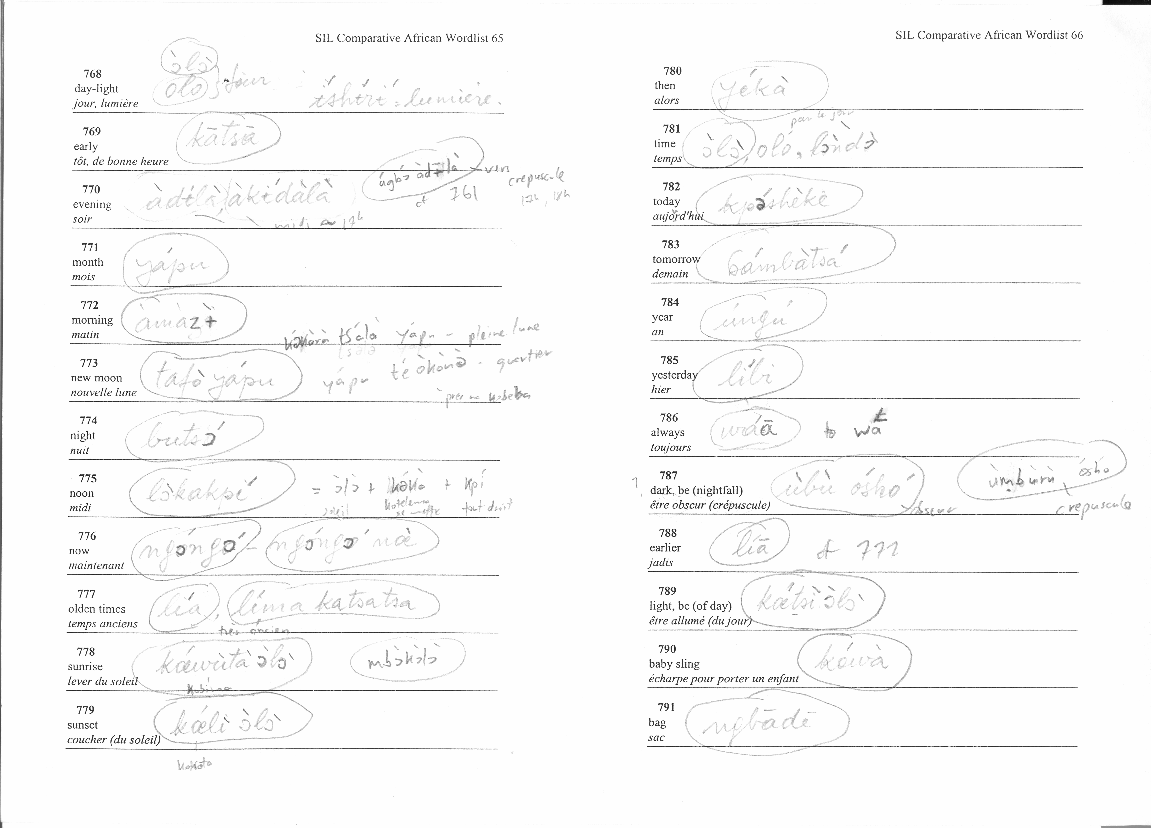 SIL Comparative African Wordlist 65
768
day-light
jour, lumière
ɔ̀lɔ̀
olo jour
= lumière.
769
early
tôt, de bonne heure
kātsā
770
evening
soir
àdɨ̀là, àkɨ́dàlà
cf 761
crepuscule
771
month
mois
yápu
772
morning
matin
àmàzɨ̀
773
new moon
nouvelle lune
tafò yápu
yápu - pleine lune
yápu té òkónə̀ - quartier
774
night
nuit
butsɔ́
775
noon
midi
lɔ̀kakpí
= ɔ̀lɔ̀ + kəkə + kpí
soleil
tout droit
776
now
maintenant
ngɔ́ngɔ́ - ngɔ́ngɔ́ nà
777
olden times
temps anciens
lía, líma katsatsa
très ancien
778
sunrise
lever du soleil
káwùtà ɔ̀lɔ̀
mbɔ̀kɔ̀lɔ̀
779
sunset
coucher (du soleil)
káèlì ɔ̀lɔ̀
SIL Comparative African Wordlist 66
780
then
alors
yékà
781
time
temps
ɔ̀lɔ̀, oló, lɔ̀ndɔ̀
par le jour
782
today
aujord'hui
kpəshèkê
783
tomorrow
demain
ɓámbàtsá
784
year
an
úngú
785
yesterday
hier
líbí
786
always
toujours
wāā
787
dark, be (nightfall)
être obscur (crépuscule)
ùbù óshó
obscur
ùmbùrù óshó
crepuscule
788
earlier
jadis
líā
cf 777
789
light, be (of day)
être allumé (du jour)
káètsì ɔ̀lɔ̀
790
baby sling
écharpe pour porter un enfant
káwà
791
bag
sac
ngbādē